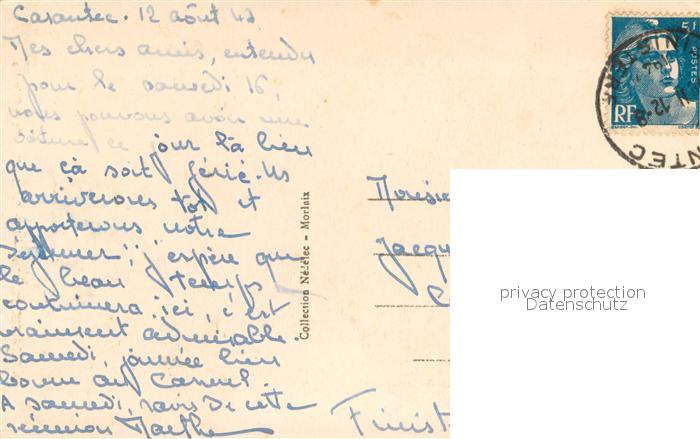 Carantec. 12 août 47
Mes chers amis, entendu
pour le samedi 16,
nous pouvons avoir une
voiture ce jour là bien
que çà soit férié. Ns
arriverons tot et
apporterons notre
déjeuner, j'espère que
le beau temps
continuera ici, c'est
vraiment admirable.
Samedi, journée bien
bonne au
A samedi, ravis de cette
réunion Marthe
Collection Nédélec - Morlaix
5F
POSTES
RF
12-8
NTEC
Monsie
Jacqu
Finist
privacy protection
Datenschutz